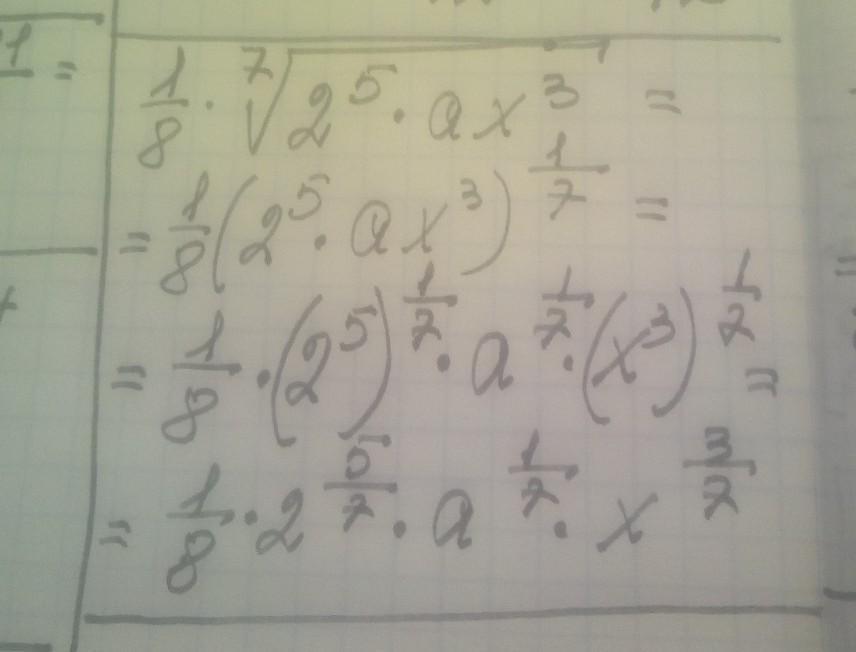 1/8 · ⁷√(2⁵ · ax³) =
= 1/8 (2⁵ · ax³)^(1/7) =
= 1/8 · (2⁵)^(1/7) · a^(1/7) · (x³)^(1/7) =
= 1/8 · 2^(5/7) · a^(1/7) · x^(3/7)